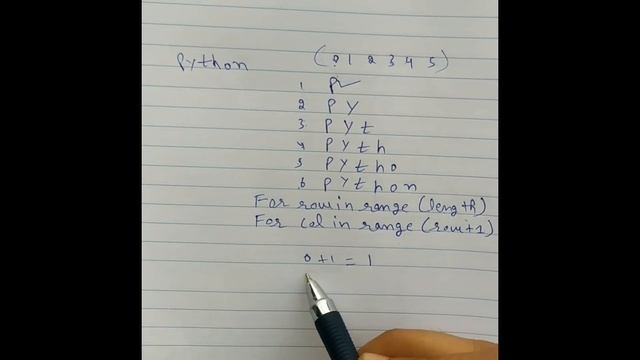 Python (0 1 2 3 4 5)
1 P
2 P Y
3 P Y t
4 P Y t h
5 P Y t h o
6 P Y t h o n
For row in range (length)
For col in range (row+1)
0+1=1